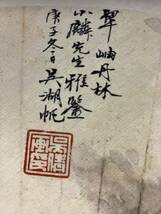 翠岫丹林
小麟先生雅鑒
庚子冬日吳湖帆
吳湖
帆印